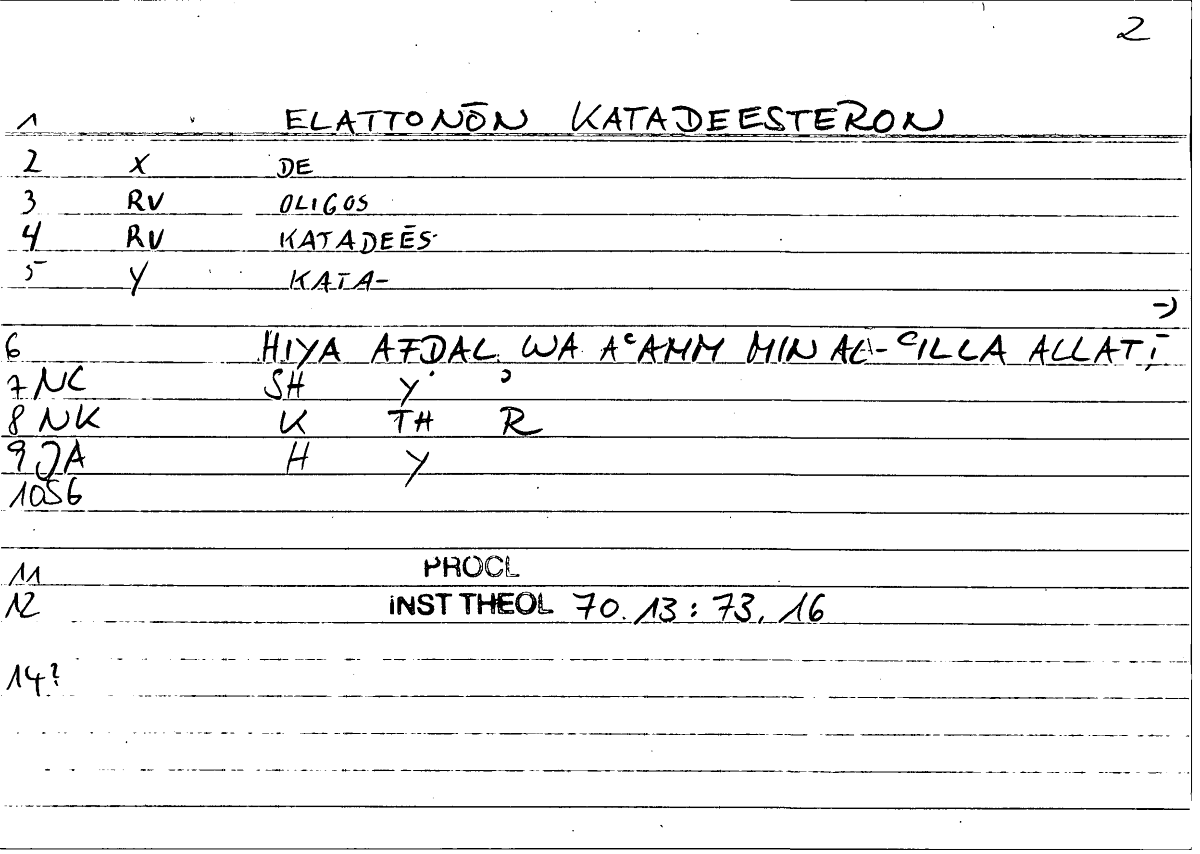 2
1 ELATTONŌN KATADEESTERON
2 X DE
3 RV OLIGOS
4 RV KATADEĒS
5 Y KATA-
→
6 HIYA AFḌAL WA AᶜAMM MIN AL-ᶜILLA ALLATĪ
7 NC SH Y ʾ
8 NK K TH R
9 JA H Y
10 SG
11 PROCL
12 INST THEOL 70.13 : 73, 16
14?